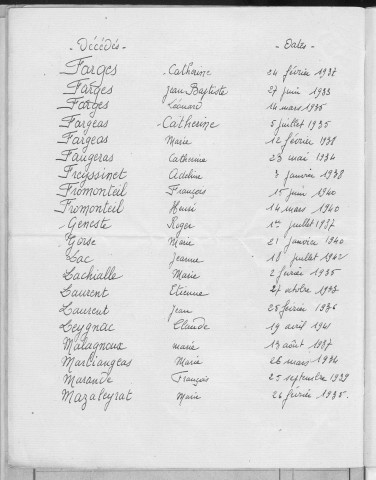 - Décédés - - Dates -
Farges Catherine 24 février 1937
Farges Jean Baptiste 27 juin 1933
Farges Léonard 14 mars 1935
Fargeas Catherine 5 juillet 1935
Fargeas Marie 12 février 1938
Faugeras Catherine 23 mai 1934
Freyssinet Adeline 3 janvier 1938
Fromonteil François 15 juin 1940
Fromonteil Henri 14 mars 1940
Geneste Roger 1er juillet 1937
Gorse Marie 21 janvier 1940
Lac Jeanne 18 juillet 1942
Lachialle Marie 2 février 1935
Laurent Etienne 27 octobre 1933
Laurent Jean 25 février 1936
Leygnac Claude 19 avril 1941
Malagnoux Marie 13 août 1937
Marciangeas Marie 26 mars 1934
Marande François 25 septembre 1939
Mazaleyrat Marie 26 février 1935.